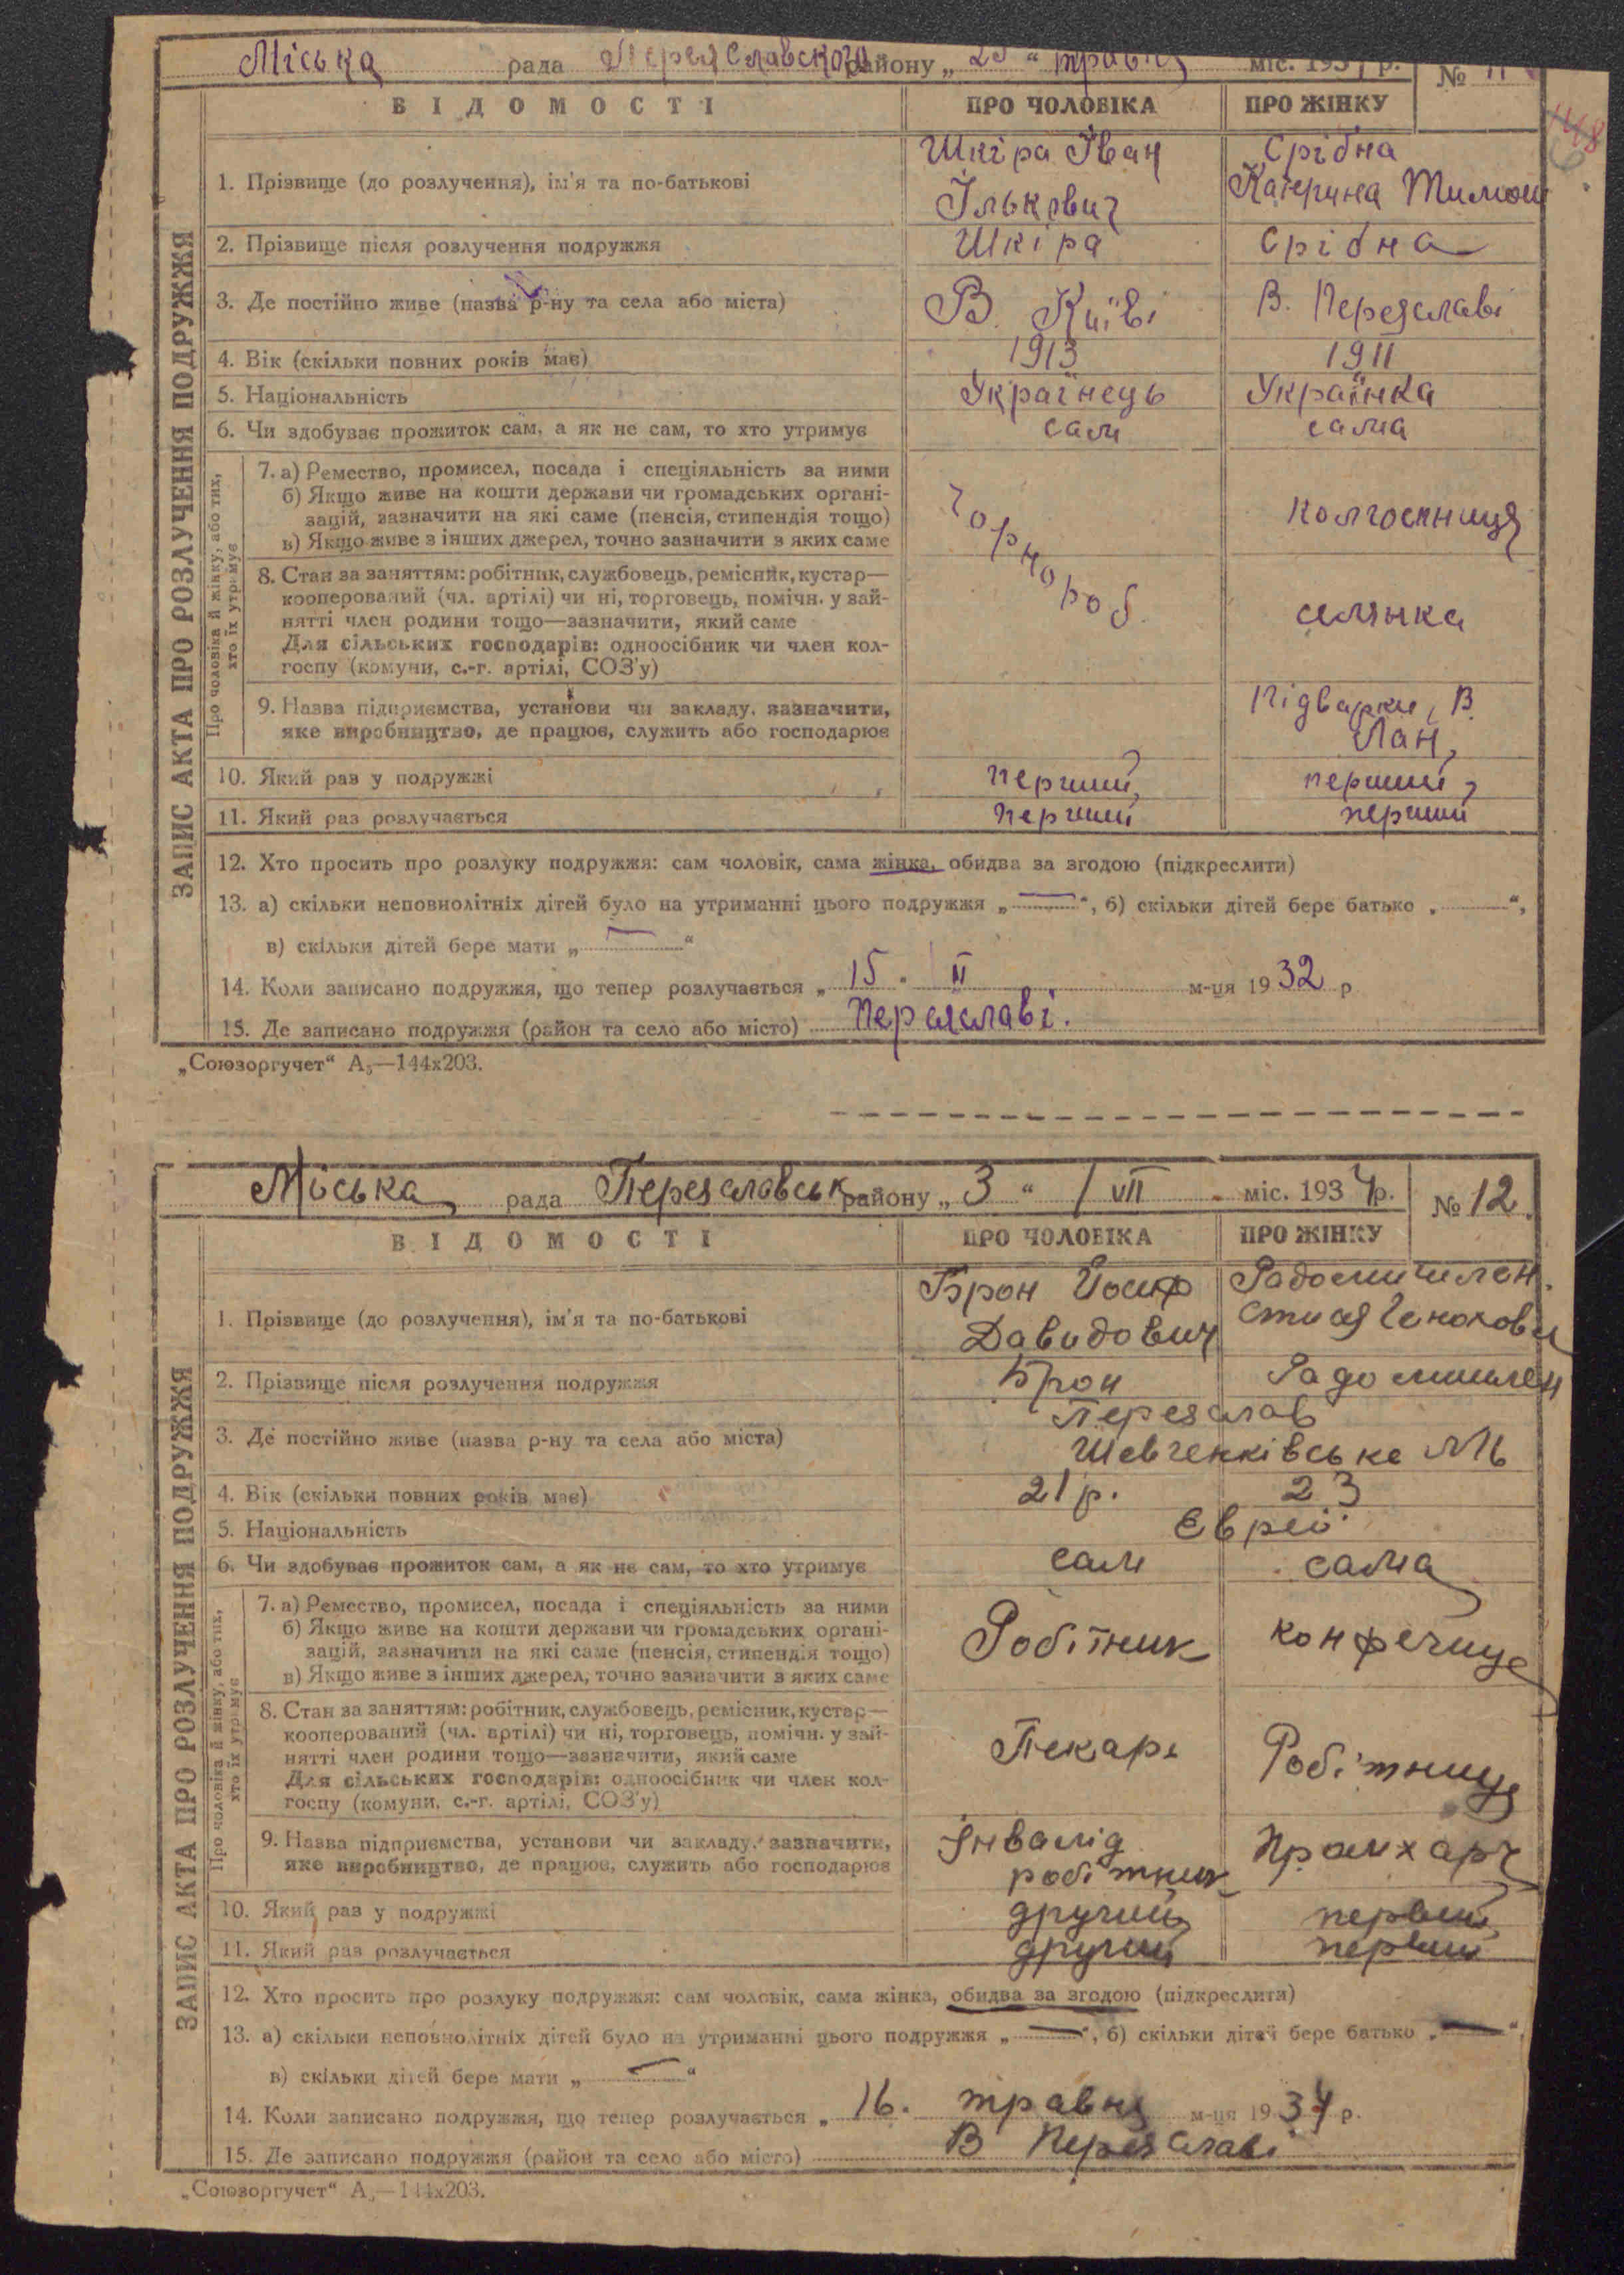 Міська рада Переяславского району „ 23 “ травня міс. 1934 р. № 11
ВІДОМОСТІ ПРО ЧОЛОВІКА ПРО ЖІНКУ
ЗАПИС АКТА ПРО РОЗЛУЧЕННЯ ПОДРУЖЖЯ
Шкіра Іван Срібна
1. Прізвище (до розлучення), ім'я та по-батькові
Ількович Катерина Тимош
2. Прізвище після розлучення подружжя Шкіра Срібна
3. Де постійно живе (назва р-ну та села або міста) В. Київі В. Переяславі
4. Вік (скільки повних років має) 1913 1911
5. Національність Українець Українка
6. Чи здобуває прожиток сам, а як не сам, то хто утримує сам сама
Про чоловіка й жінку, або тих,
хто їх утримує
7. а) Ремество, промисел, посада і спеціяльність за ними
б) Якщо живе на кошти держави чи громадських органі-
зацій, зазначити на які саме (пенсія, стипендія тощо)
в) Якщо живе з інших джерел, точно зазначити з яких саме
чорнороб. колгоспниця
8. Стан за заняттям: робітник, службовець, ремісник, кустар—
кооперований (чл. артілі) чи ні, торговець, помічн. у зай-
нятті член родини тощо—зазначити, який саме
Для сільських господарів: одноосібник чи член кол-
госпу (комуни, с.-г. артілі, СОЗ'у)
селянка
9. Назва підприємства, установи чи закладу, зазначити,
яке виробництво, де працює, служить або господарює
Підварки, В.
Лан,
10. Який раз у подружжі перший, перший,
11. Який раз розлучається перший перший
12. Хто просить про розлуку подружжя: сам чоловік, сама жінка, обидва за згодою (підкреслити)
13. а) скільки неповнолітніх дітей було на утриманні цього подружжя „ — “, б) скільки дітей бере батько „ “,
в) скільки дітей бере мати „ — “
14. Коли записано подружжя, що тепер розлучається „ 15. II м-ця 1932 р
15. Де записано подружжя (район та село або місто) Переяславі.
„Союзоргучет“ А₅—144х203.
Міська рада Переяславськ району „ 3 “ / VII міс. 1934 р. № 12.
ВІДОМОСТІ ПРО ЧОЛОВІКА ПРО ЖІНКУ
ЗАПИС АКТА ПРО РОЗЛУЧЕННЯ ПОДРУЖЖЯ
Брон Йосиф Радомишлен.
1. Прізвище (до розлучення), ім'я та по-батькові
Давидович
2. Прізвище після розлучення подружжя Брон Радомишлен
Переяслав
3. Де постійно живе (назва р-ну та села або міста)
Шевченківське №16
4. Вік (скільки повних років має) 21 р. 23
5. Національність Єврей
6. Чи здобуває прожиток сам, а як не сам, то хто утримує сам сама
Про чоловіка й жінку, або тих,
хто їх утримує
7. а) Ремество, промисел, посада і спеціяльність за ними
б) Якщо живе на кошти держави чи громадських органі-
зацій, зазначити на які саме (пенсія, стипендія тощо)
в) Якщо живе з інших джерел, точно зазначити з яких саме
Робітник конфечиця
8. Стан за заняттям: робітник, службовець, ремісник, кустар—
кооперований (чл. артілі) чи ні, торговець, помічн. у зай-
нятті член родини тощо—зазначити, який саме
Для сільських господарів: одноосібник чи член кол-
госпу (комуни, с.-г. артілі, СОЗ'у)
Пекарь Робітниця
9. Назва підприємства, установи чи закладу, зазначити,
яке виробництво, де працює, служить або господарює
Інвалід Промхарч
робітник
10. Який раз у подружжі другий первий
11. Який раз розлучається другий первий
12. Хто просить про розлуку подружжя: сам чоловік, сама жінка, обидва за згодою (підкреслити)
13. а) скільки неповнолітніх дітей було на утриманні цього подружжя „ — “, б) скільки дітей бере батько „ — “,
в) скільки дітей бере мати „ — “
14. Коли записано подружжя, що тепер розлучається „ 16. травня м-ця 1934 р.
15. Де записано подружжя (район та село або місто) В Переяславі
„Союзоргучет“ А₅—144х203.